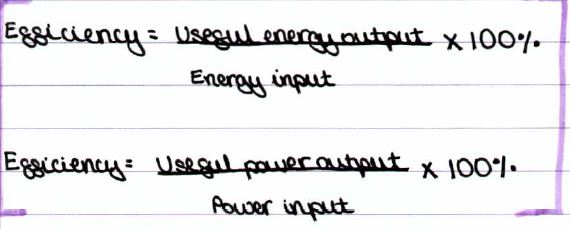 Efficiency = Useful energy output × 100%
Energy input
Efficiency = Useful power output × 100%
Power input